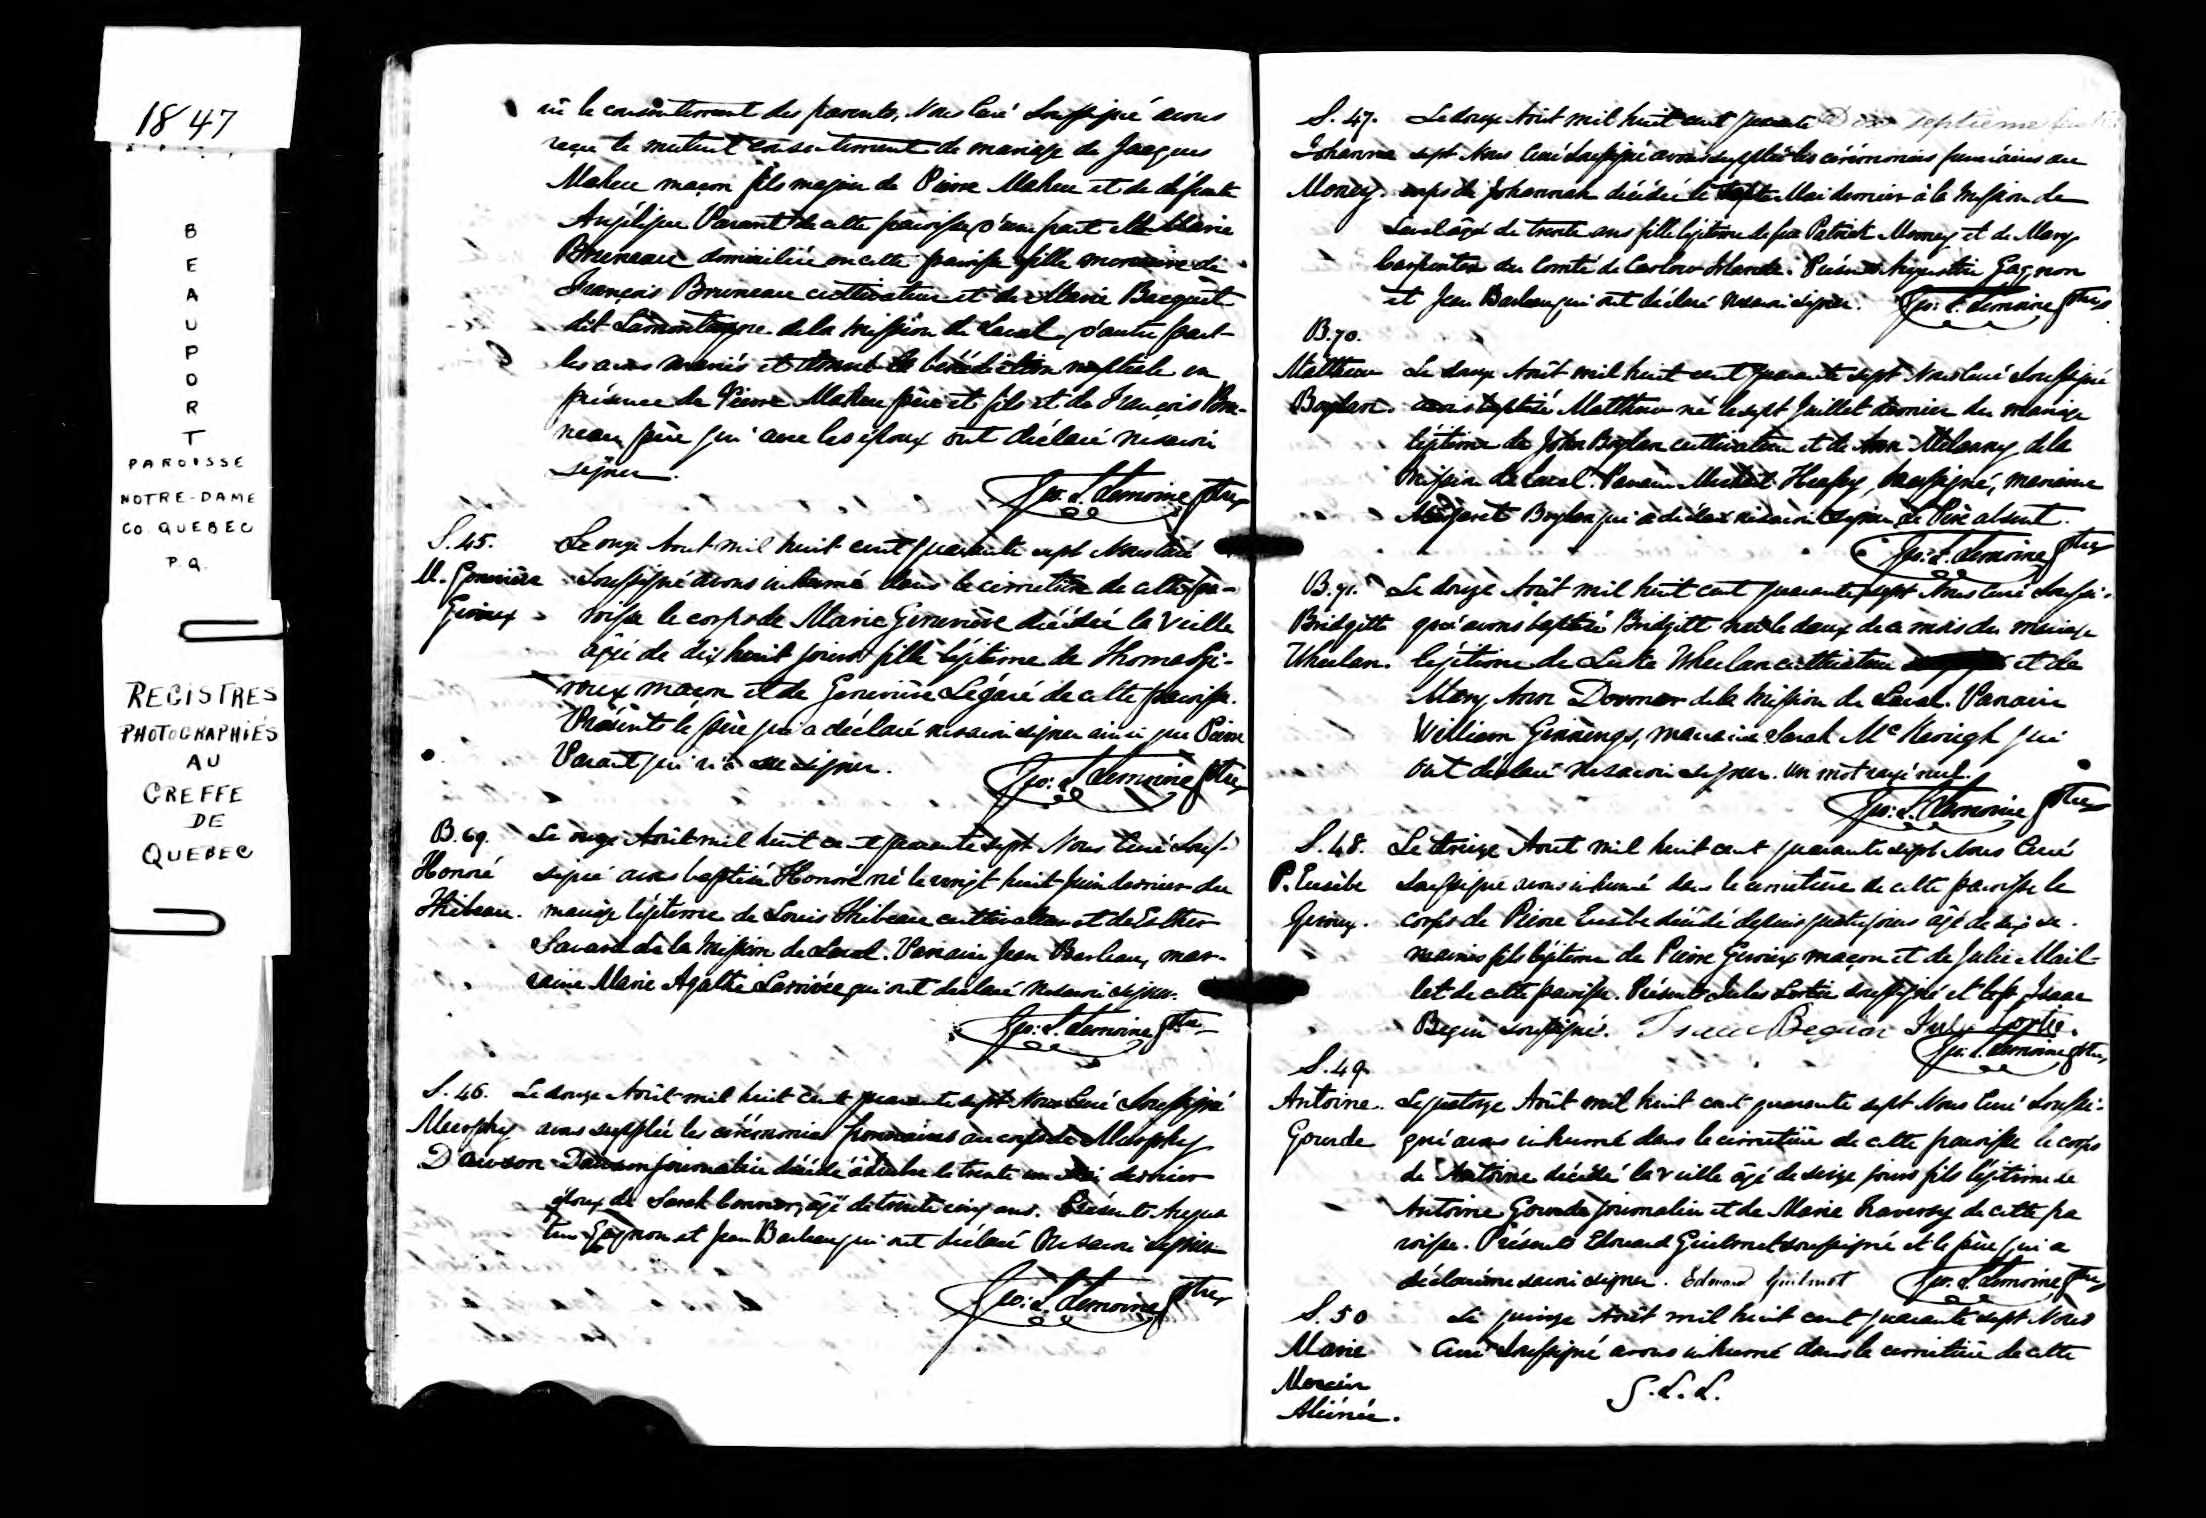 1847
BEAUPORT
PAROISSE
NOTRE-DAME
CO. QUEBEC
P.Q.
REGISTRES
PHOTOGRAPHIÉS
AU
GREFFE
DE
QUEBEC
vû le consentement des parents, Nous Curé Soussigné avons
reçu le mutuel consentement de mariage de Jacques
Maheu maçon fils majeur de Pierre Maheu et de défunte
Angélique Parant de cette paroisse d'une part et Marie
Bruneau domiciliée en cette paroisse fille mineure de
François Bruneau cultivateur et de Marie Bacquet
dit Lamontagne de la Mission de Laval, d'autre part
les avons mariés et donné la bénédiction nuptiale en
présence de Pierre Maheu père et fils et de François Bru-
neau père qui avec les époux ont déclaré ne savoir
signer.
Geo: L. Lemoine Ptre
S. 45.
M. Genevière
Giroux
Le onze Aout mil huit cent quarante sept Nous Curé
Soussigné avons inhumé dans le cimetière de cette pa-
roisse le corps de Marie Genevière décédée la veille
âgée de dix huit jours fille légitime de Thomas Gi-
roux maçon et de Genevière Légaré de cette paroisse.
Présents le père qui a déclaré ne savoir signer ainsi que Pierre
Parant qui n'a su signer.
Geo: L. Lemoine Ptre
B. 69.
Honoré
Thibeau.
Le onze Août mil huit cent quarante sept Nous Curé Sous-
signé avons baptisé Honoré né le vingt huit Juin dernier du
mariage légitime de Louis Thibeau cultivateur et de Esther
Savard de la Mission de Laval. Parrain Jean Barbeau, mar-
raine Marie Agathe Larrivée qui ont déclaré ne savoir signer.
Geo: L. Lemoine Ptre
S. 46.
Murphy
Dawson
Le douze Août mil huit cent quarante sept Nous Curé Soussigné
avons supplée les cérémonies funéraires au corps de Murphy
Dawson journalier décédé à le trente un Mai dernier
époux de Sarah Connor, âgé de trente cinq ans. Présents Augus
tin Gagnon et Jean Barbeau qui ont déclaré ne savoir signer
Geo: L. Lemoine Ptre
Dix septième feuillet
S. 47.
Johanna
Money.
Le douze Août mil huit cent quarante
sept Nous Curé Soussigné avons supplée les cérémonies funéraires au
corps de Johannah décédée le Mai dernier à la Mission de
Laval âgée de trente ans fille légitime de feu Patrick Money et de Mary
Carpenter du Comté de Carlow Irlande. Présents Augustin Gagnon
et Jean Barbeau qui ont déclaré ne savoir signer. Geo: L. Lemoine Ptre
B. 70.
Matthew
Boylan.
Le douze Août mil huit cent quarante sept Nous Curé Soussigné
avons baptisé Matthew né le sept Juillet dernier du mariage
légitime de John Boylan cultivateur et de Ann de la
Mission de Laval. Parrain Michael soussigné, marraine
Margaret Boylan qui a déclaré ne savoir signer le Père absent.
Geo: L. Lemoine Ptre
B. 71.
Bridgitt
Wheelan.
Le douze Août mil huit cent quarante sept Nous Curé Soussi-
gné avons baptisé Bridgitt née le deux de ce mois du mariage
légitime de Luke Wheelan cultivateur et de
Mary Ann de la Mission de Laval. Parrain
William Gennings, marraine Sarah McKeough qui
ont déclaré ne savoir signer. Un mot rayé nul.
Geo: L. Lemoine Ptre
S. 48.
P. Eusèbe
Giroux.
Le treize Aout mil huit cent quarante sept Nous Curé
Soussigné avons inhumé dans le cimetière de cette paroisse le
corps de Pierre Eusèbe décédé depuis quatre jours âgé de six se-
maines fils légitime de Pierre Giroux maçon et de Julie Mail-
let de cette paroisse. Présents Jules Lortie soussigné et Isaac
Begin soussigné. Isaac Begin Jules Lortie.
Geo: L. Lemoine Ptre
S. 49
Antoine
Gourde
Le quatorze Août mil huit cent quarante sept Nous Curé Soussi-
gné avons inhumé dans le cimetière de cette paroisse le corps
de Antoine décédé la veille âgé de seize jours fils légitime de
Antoine Gourde journalier et de Marie Traversy de cette pa
roisse. Présents Edouard Guilmet soussigné et le père qui a
déclaré ne savoir signer. Edouard Guilmet Geo: L. Lemoine Ptre
S. 50
Marie
Mercier
Aliénée.
Le quinze Août mil huit cent quarante sept Nous
Curé Soussigné avons inhumé dans le cimetière de cette
G. L. L.